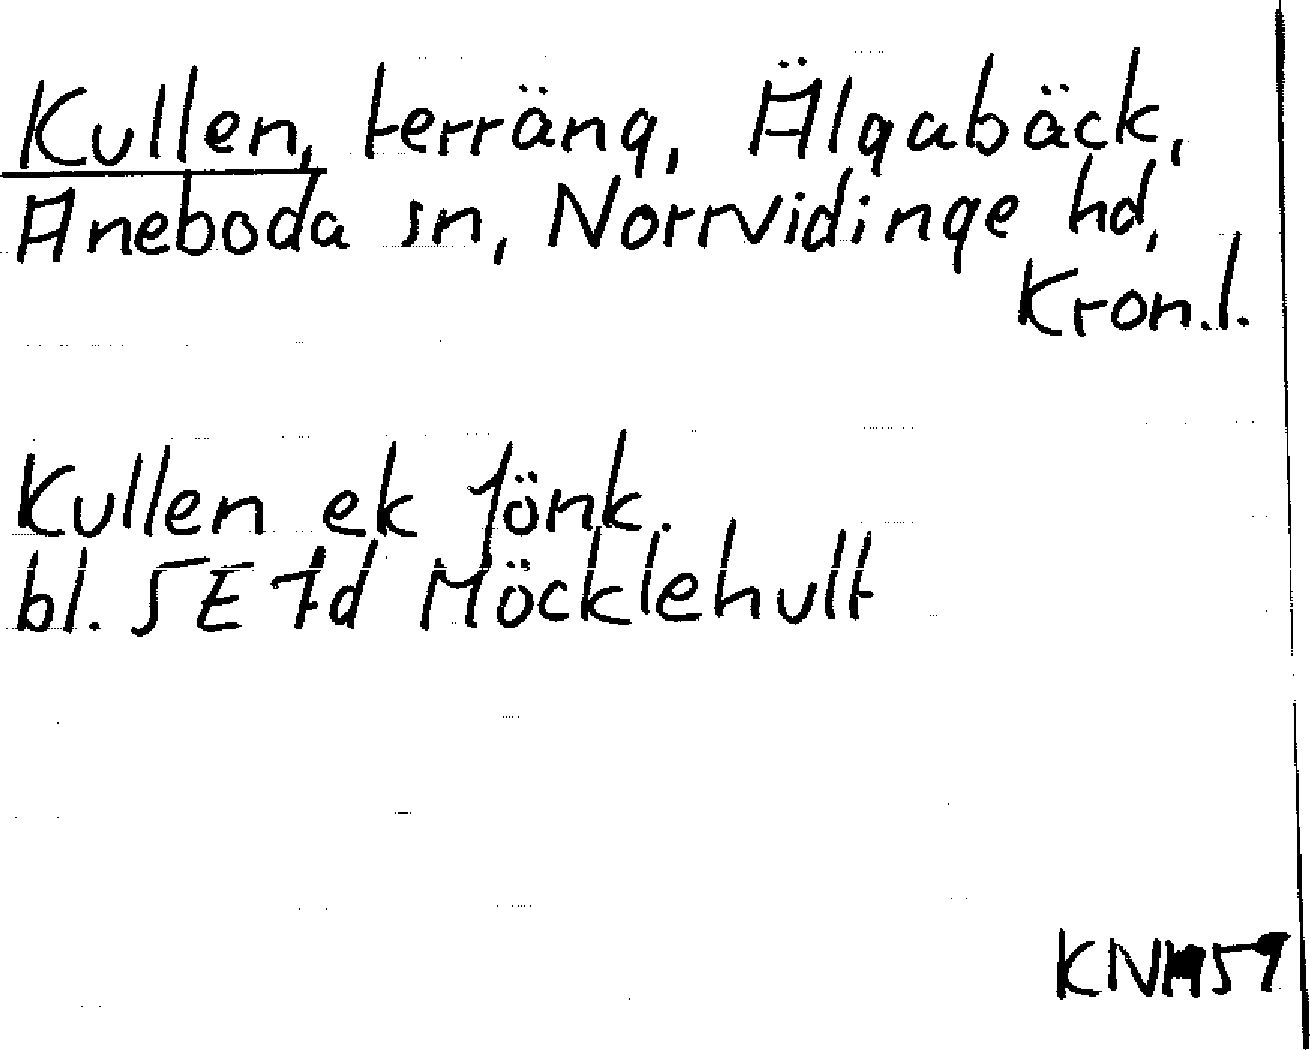 Kullen, terräng, Älgabäck,
Aneboda sn, Norrvidinge hd,
Kron.l.
Kullen ek Jönk.
bl. 5E7d Möcklehult
KN 1959